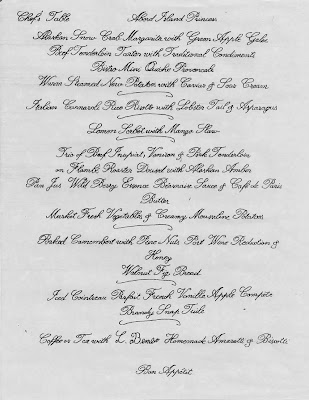 Chef's Table Abord Island Princess
Alaskan Snow Crab Margarita with Green Apple Gelee
Beef Tenderloin Tartar with Traditional Condiments
Bistro Mini Quiche Provencale
Warm Steamed New Potatoes with Caviar & Sour Cream
Italian Carnaroli Rice Risotto with Lobster Tail & Asparagus
Lemon Sorbet with Mango Slaw
Trio of Beef, Veal, Venison & Pork Tenderloin
on Flambé Roaster Dressed with Alaskan Amber
Pan Jus Wild Berry Essence Béarnaise Sauce & Café de Paris
Butter
Market Fresh Vegetables & Creamy Mousseline Potatoes
Baked Camembert with Pine Nuts Port Wine Reduction &
Honey
Walnut Fig Bread
Iced Cointreau Parfait, French Vanilla Apple Compote
Brandy Snap Tuile
Coffee or Tea with Homemade Amaretti & Biscotti
Bon Appétit